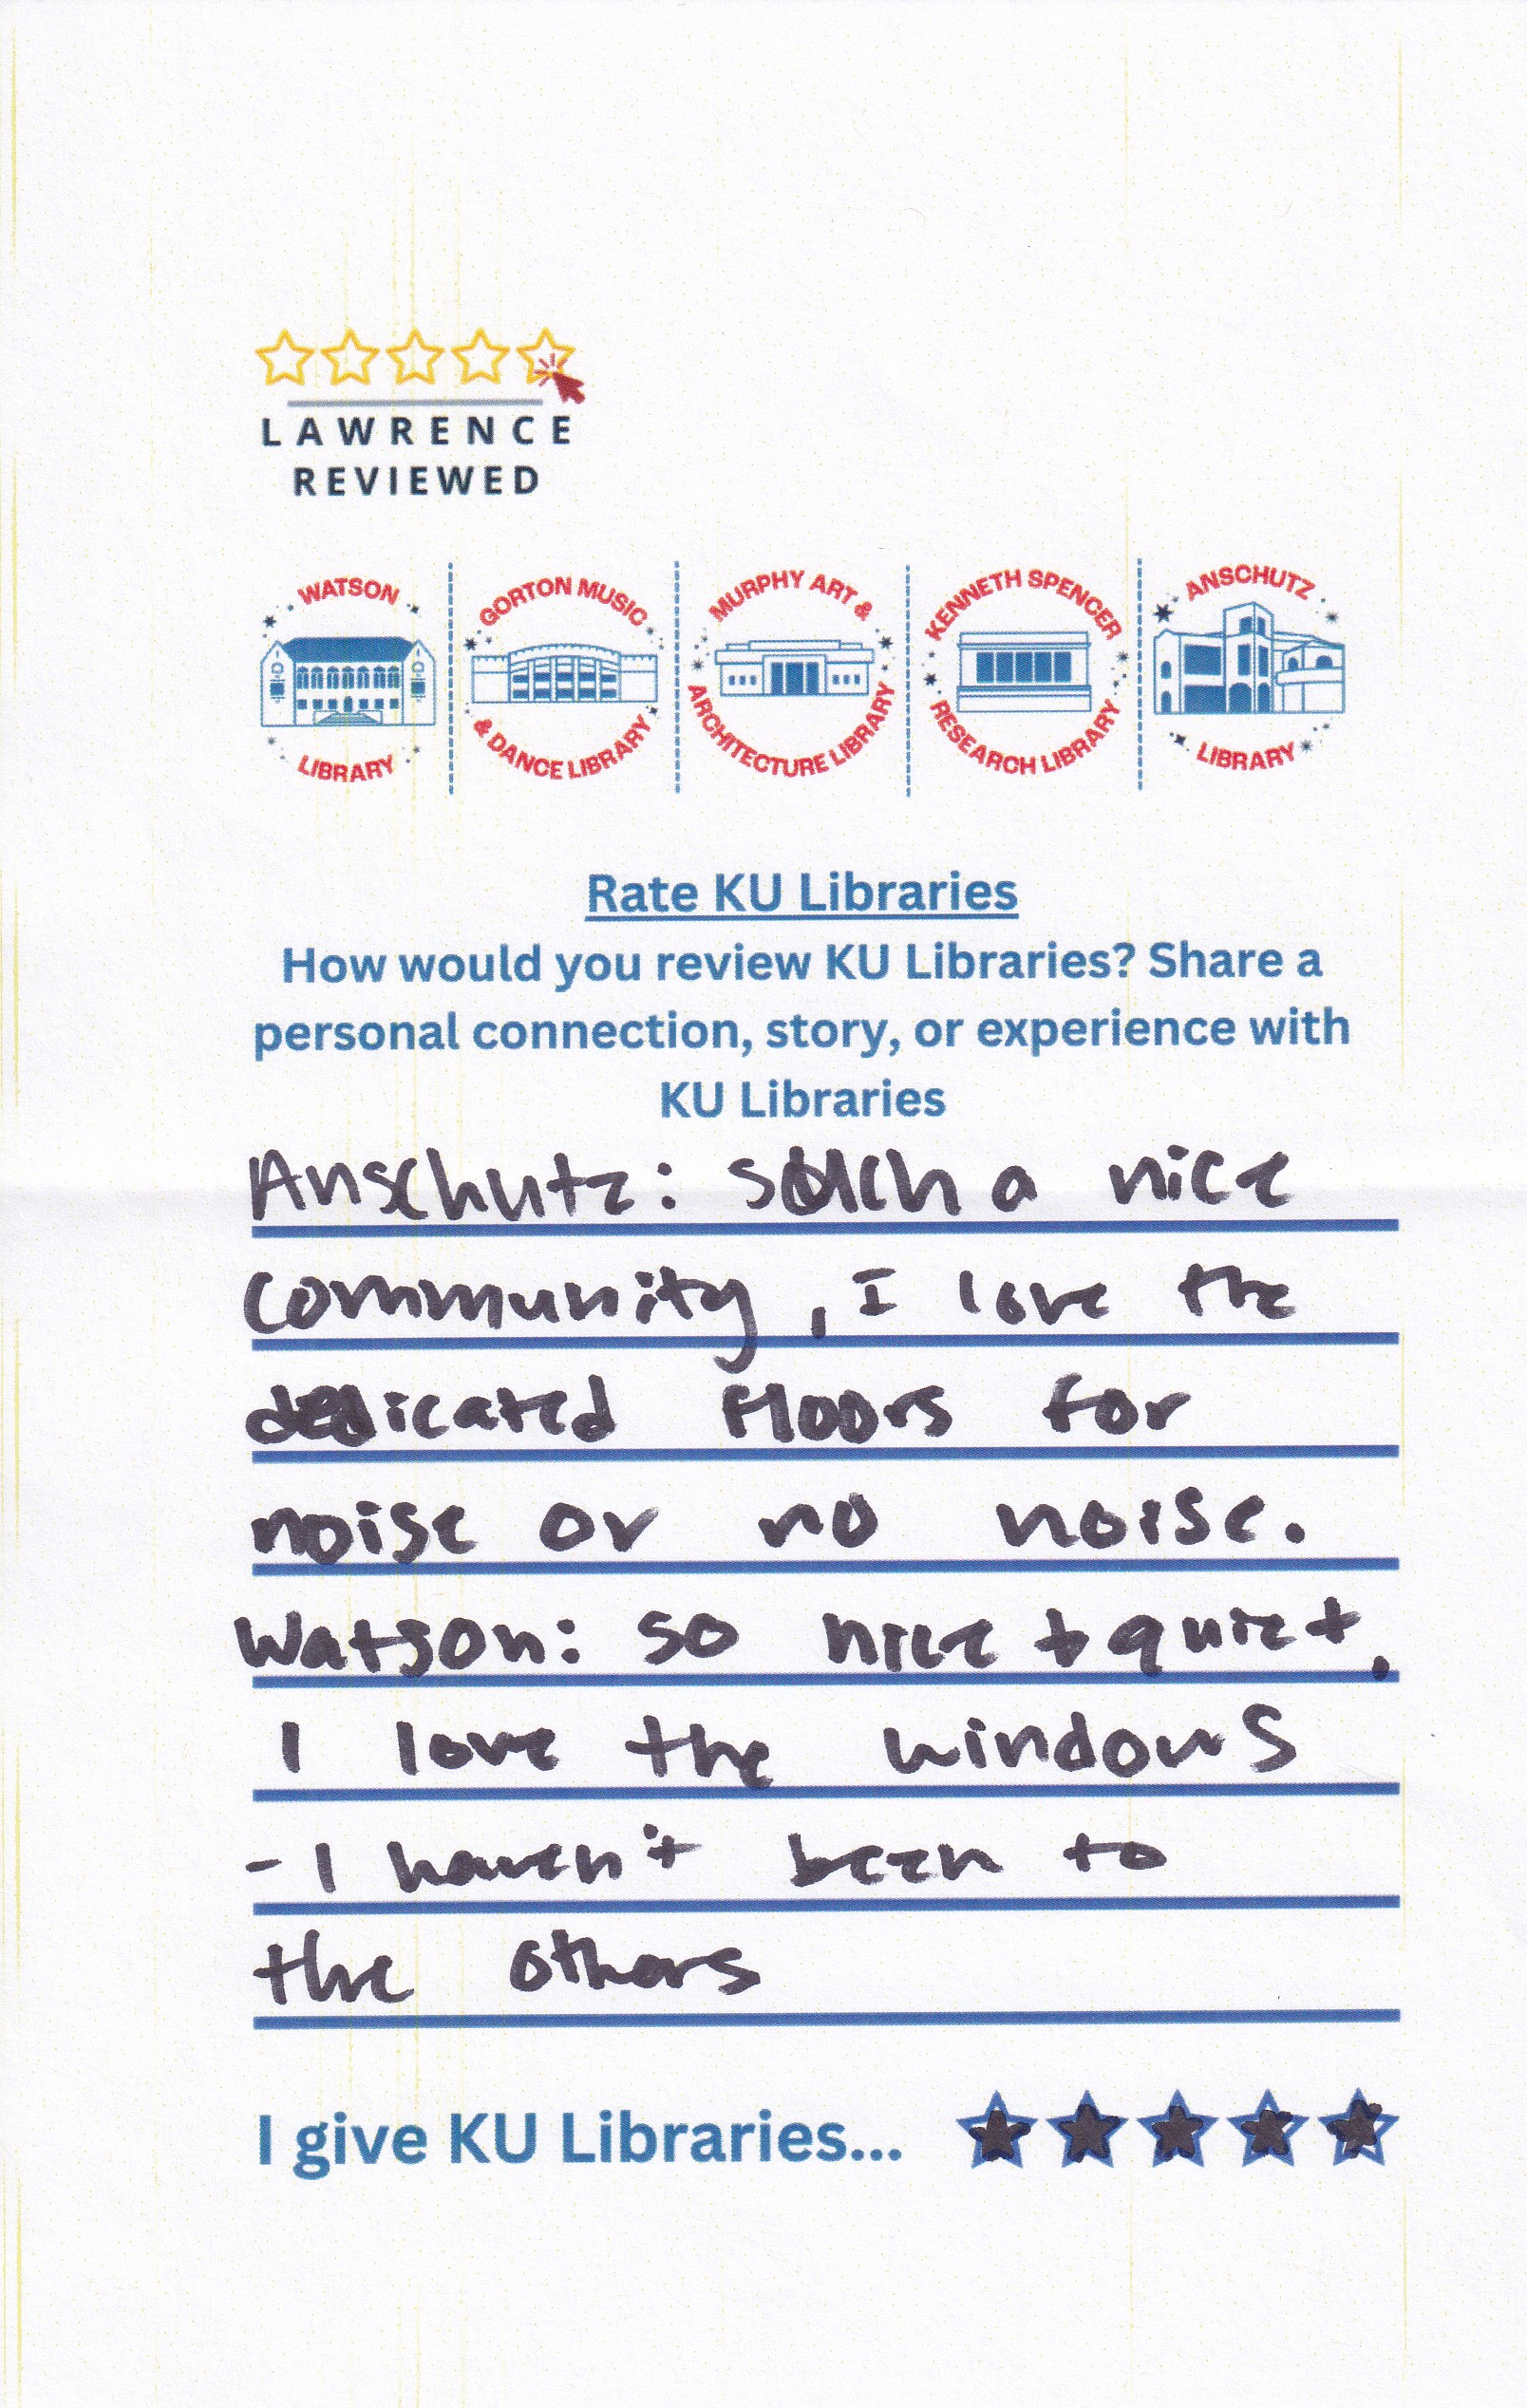 LAWRENCE
REVIEWED
WATSON
LIBRARY
GORTON MUSIC
& DANCE LIBRARY
MURPHY ART &
ARCHITECTURE LIBRARY
KENNETH SPENCER
RESEARCH LIBRARY
ANSCHUTZ
LIBRARY
Rate KU Libraries
How would you review KU Libraries? Share a
personal connection, story, or experience with
KU Libraries
Anschutz: such a nice
community, I love the
dedicated floors for
noise or no noise.
Watson: so nice + quiet,
I love the windows
- I haven't been to
the others
I give KU Libraries...